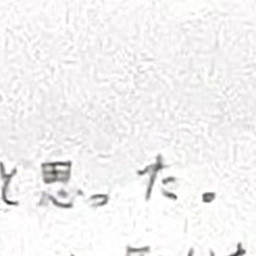 と思った。